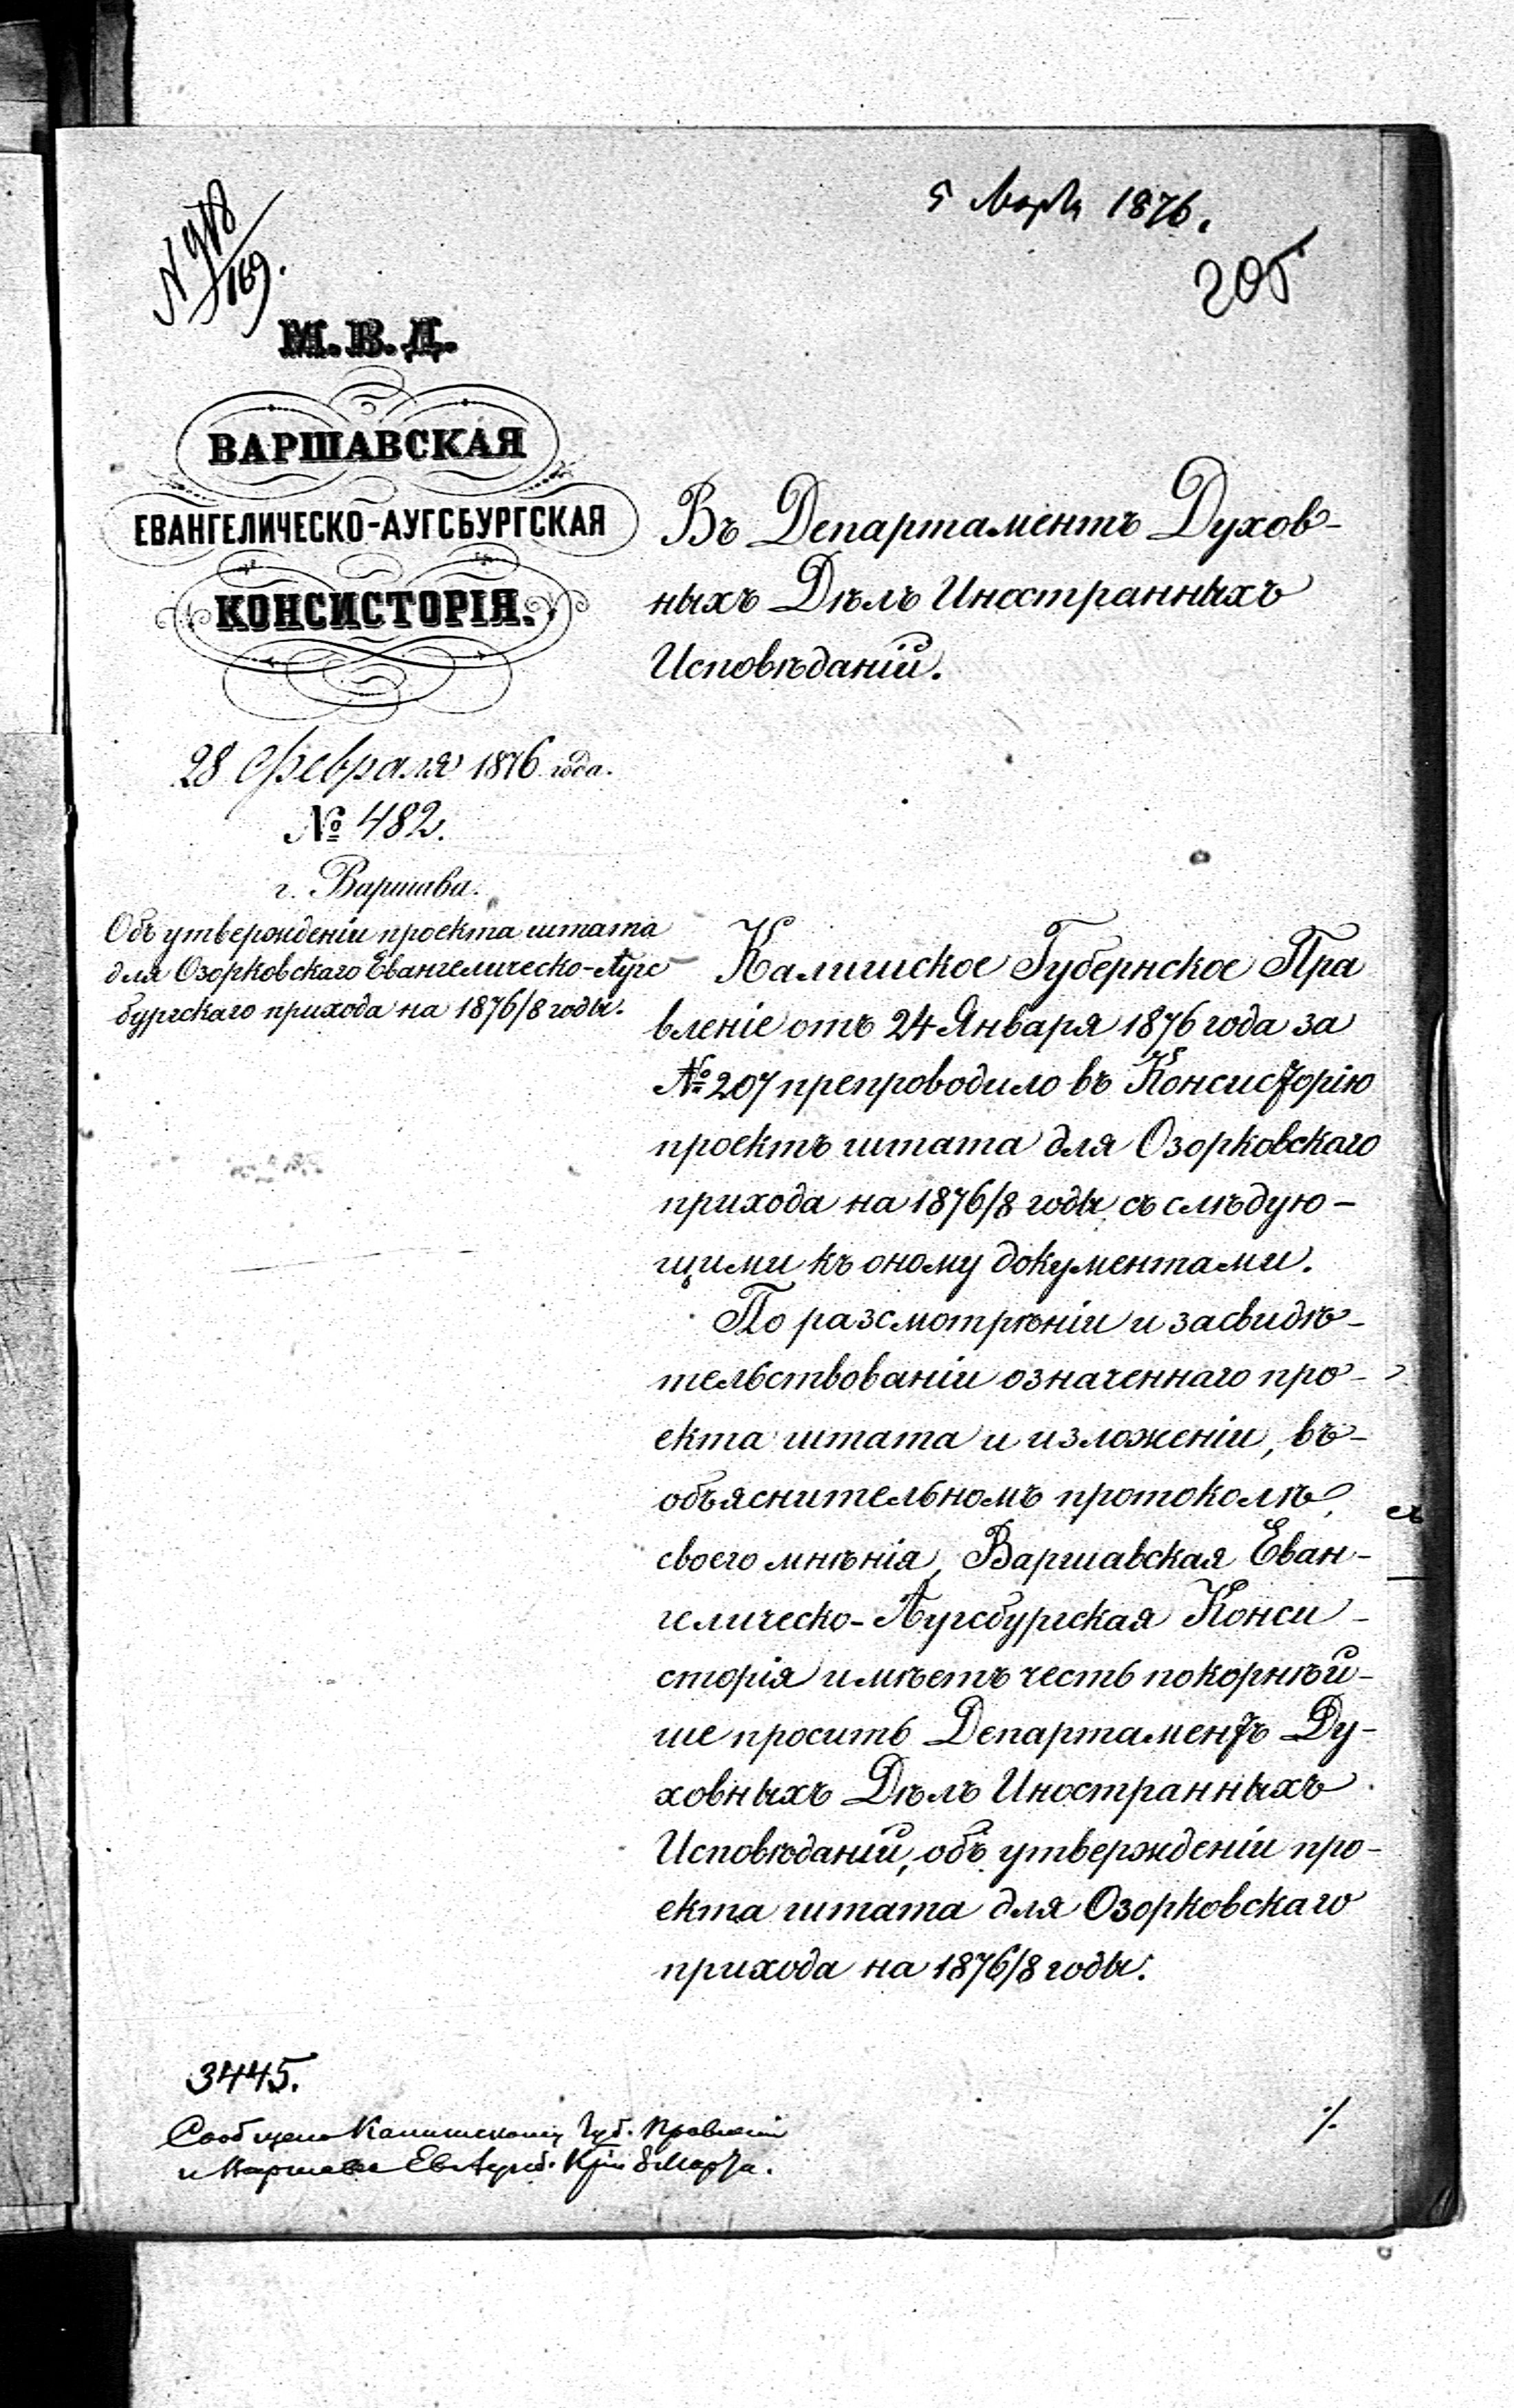 5 Марта 1876.
205
М. В. Д.
ВАРШАВСКАЯ
ЕВАНГЕЛИЧЕСКО-АУГСБУРГСКАЯ
КОНСИСТОРІЯ.
28 Февраля 1876 года.
№ 482.
г. Варшава.
Объ утвержденіи проекта штата
для Озорковскаго Евангелическо-Аугс-
бургскаго прихода на 1876/8 годы.
Въ Департаментъ Духов-
ныхъ Дѣлъ Иностранныхъ
Исповѣданій.
Калишское Губернское Пра
вленіе отъ 24 Января 1876 года за
№ 207 препроводило въ Консисторію
проектъ штата для Озорковскаго
прихода на 1876/8 годы съ слѣдую-
щими къ оному документами.
По разсмотрѣніи и засвидѣ-
тельствованіи означеннаго про-
екта штата и изложеніи, въ-
объяснительномъ протоколѣ,
своего мнѣнія, Варшавская Еван-
гелическо-Аугсбургская Конси-
сторія имѣетъ честь покорнѣй-
ше просить Департаментъ Ду-
ховныхъ Дѣлъ Иностранныхъ
Исповѣданій, объ утвержденіи про-
екта штата для Озорковскаго
прихода на 1876/8 годы.
3445.
Сообщено Калишскому Губ. Правленію
и Варшавс Ев Аугсб. Кріи 8 Марта.